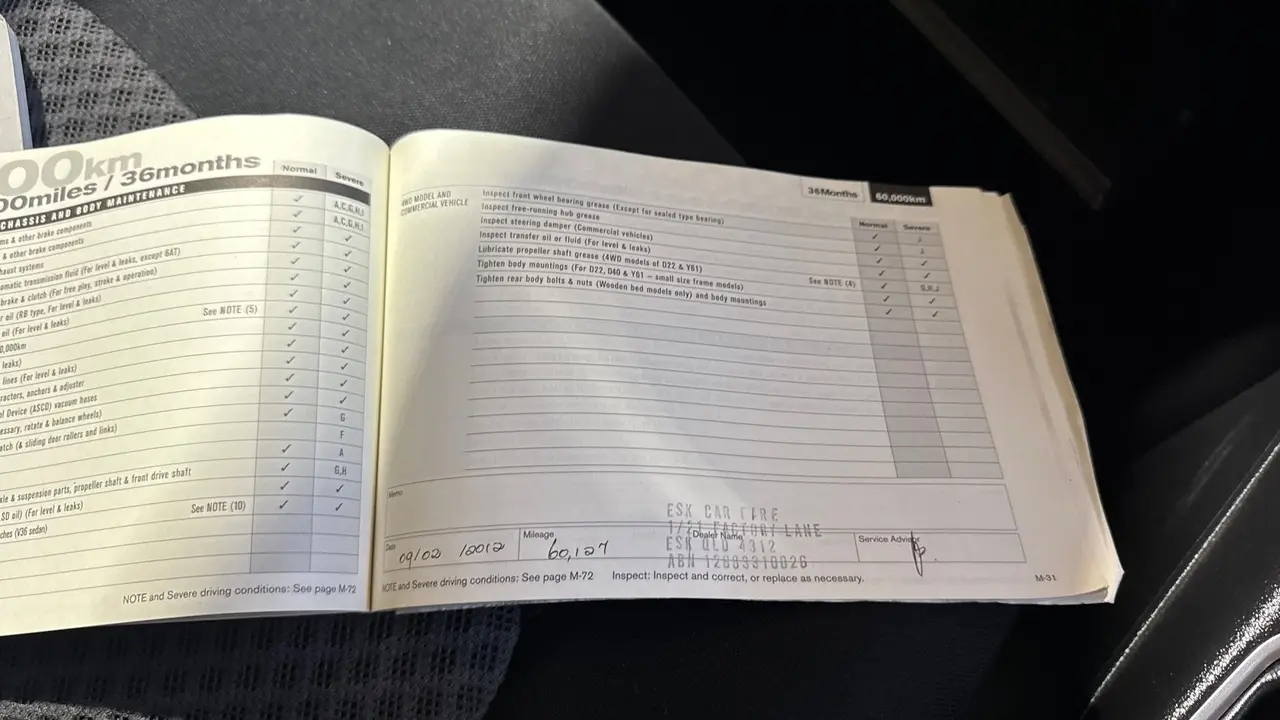 00km
00miles / 36months
Normal
Severe
CHASSIS AND BODY MAINTENANCE
& other brake components
✓
A,C,G,H,I
& other brake components
✓
A,C,G,H,I
haust systems
✓
✓
omatic transmission fluid (For level & leaks, except 6AT)
✓
✓
brake & clutch (For free play, stroke & operation)
✓
✓
r oil (RB type, For level & leaks)
✓
✓
oil (For level & leaks)
See NOTE (5)
✓
✓
0,000km
✓
✓
leaks)
✓
✓
lines (For level & leaks)
✓
✓
ractors, anchors & adjuster
✓
✓
ol Device (ASCD) vacuum hoses
✓
✓
essary, rotate & balance wheels)
✓
G
atch (& sliding door rollers and links)
F
✓
A
xle & suspension parts, propeller shaft & front drive shaft
✓
G,H
✓
✓
SD oil) (For level & leaks)
See NOTE (10)
✓
✓
ches (V36 sedan)
NOTE and Severe driving conditions: See page M-72
36Months
60,000km
4WD MODEL AND
COMMERCIAL VEHICLE
Normal
Severe
Inspect front wheel bearing grease (Except for sealed type bearing)
✓
Inspect free-running hub grease
✓
Inspect steering damper (Commercial vehicles)
✓
✓
Inspect transfer oil or fluid (For level & leaks)
✓
✓
Lubricate propeller shaft grease (4WD models of D22 & Y61)
See NOTE (4)
✓
G,H,J
Tighten body mountings (For D22, D40 & Y61 – small size frame models)
✓
✓
Tighten rear body bolts & nuts (Wooden bed models only) and body mountings
✓
✓
Memo
ESK CAR CARE
1/21 FACTORY LANE
ESK QLD 4312
ABN 12889310026
Date
09/02 /2012
Mileage
60,127
Dealer Name
Service Advisor
NOTE and Severe driving conditions: See page M-72
Inspect: Inspect and correct, or replace as necessary.
M-31